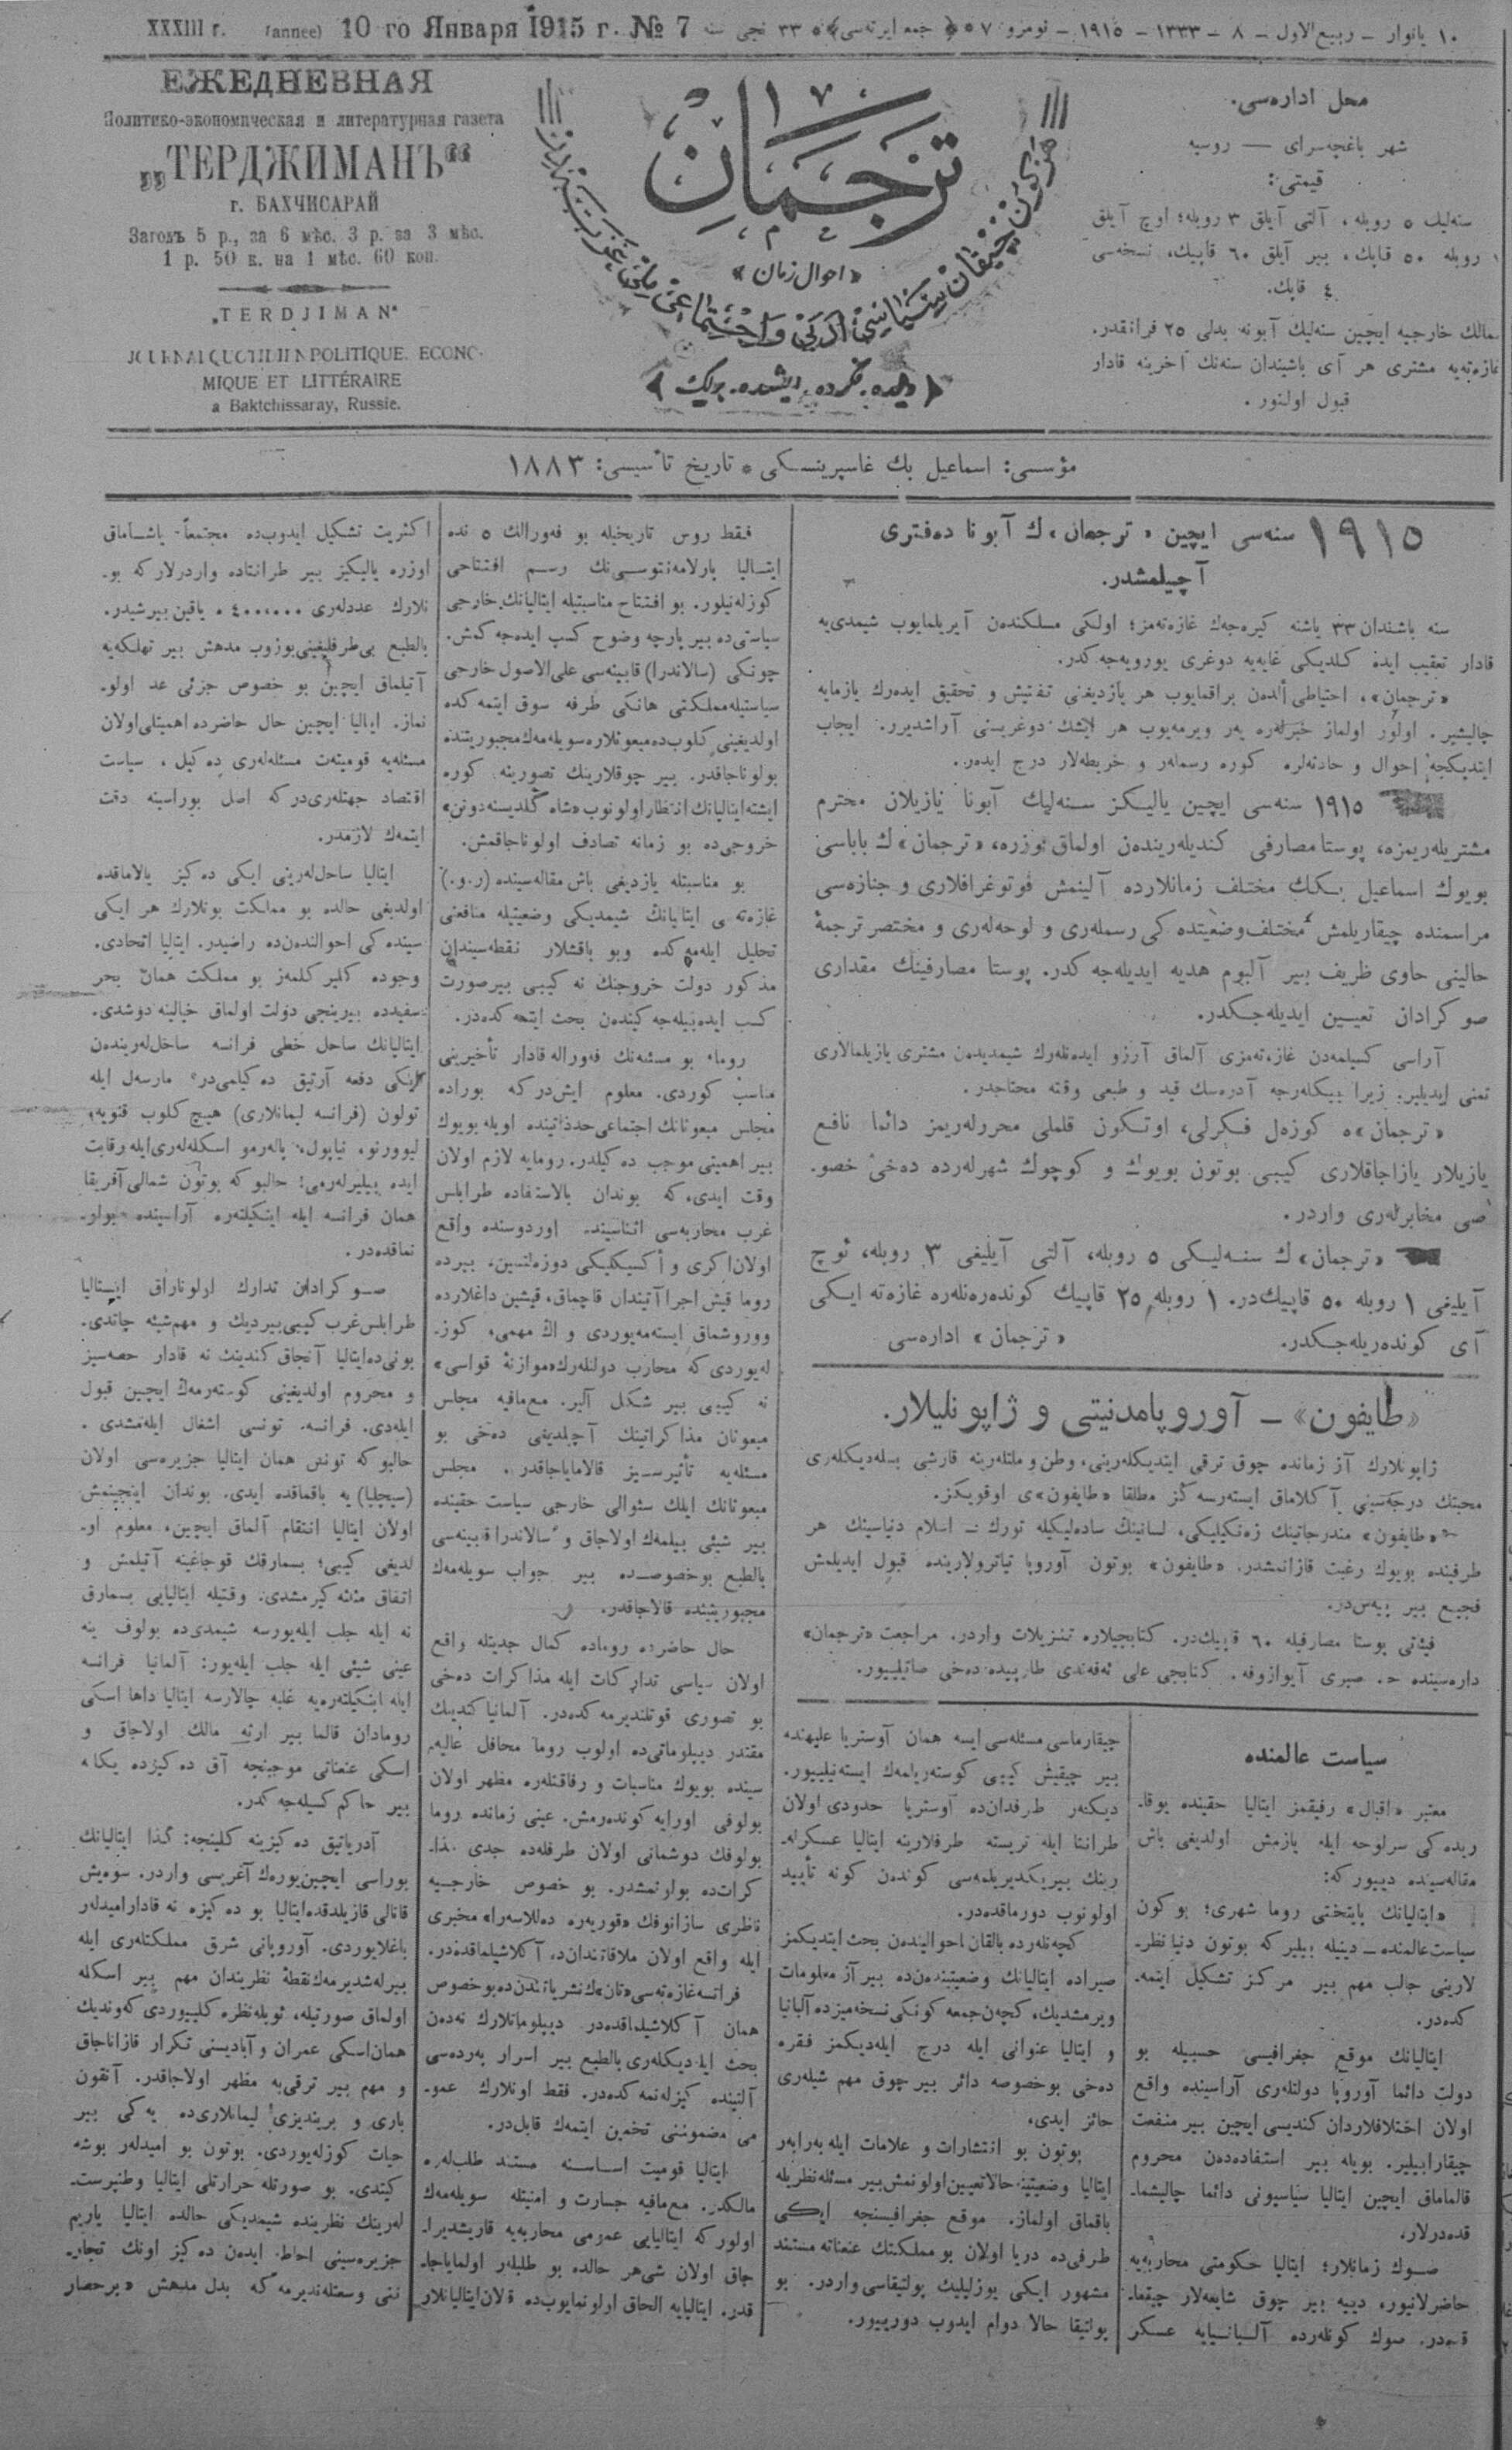 XXXIII г. (annee) 10 го Января 1915 г. № 7
١٠ يانوار ـ ربيع الاول ـ ٨ ـ ١٣٣٣ ـ ١٩١٥ ـ نومرو ٧ ٥ ﴿ جمعه ايرته‌سى ﴾ ٥ ٣٣ نجى سنه
ЕЖЕДНЕВНАЯ
Политико-экономическая и литературная газета
„ТЕРДЖИМАНЪ“
г. БАХЧИСАРАЙ
Загодъ 5 р., за 6 мѣс. 3 р. за 3 мѣс.
1 р. 50 к. на 1 мѣс. 60 коп.
„TERDJIMAN“
JOURNAL QUOTIDIEN POLITIQUE. ECONO-
MIQUE ET LITTÉRAIRE
a Baktchissaray, Russie.
ترجمان
«احوال زمان»
دلده، فكرده، ايشده، برلك
محل اداره‌سى.
شهر باغچه‌سراى — روسيه
قيمتى:
سنه‌ليك ٥ روبله، آلتى آيلق ٣ روبله؛ اوچ آيلق
روبله ٥٠ قاپك، بير آيلق ٦٠ قاپيك، نسخه‌سى
٤ قاپك.
ممالك خارجيه ايچين سنه‌ليك آبونه بدلى ٢٥ فرانقدر.
غازه‌ته‌يه مشترى هر آى باشيندان سنه‌نك آخرينه قادار
قبول اولنور.
مؤسسى: اسماعيل بك غاسپرينسكى * تاريخ تأسيسى: ١٨٨٣
١٩١٥ سنه‌سى ايچين «ترجمان»ك آبونا ده‌فترى
آچيلمشدر.
سنه باشندان ٣٣ ياشنه كيره‌جه‌ك غازه‌ته‌مز؛ اولكى مسلكنده‌ن آيريلمايوب شيمدى‌يه
قادار تعقيب ايده كلديكى غايه‌يه دوغرى يورويه‌جه‌كدر.
«ترجمان»، احتياطى ألدن براقمايوب هر يازديغنى تفتيش و تحقيق ايده‌رك يازمايه
چاليشير. اولور اولماز خبرله‌ره يه‌ر ويرمه‌يوب هر ايشك دوغريسنى آراشديرر. ايجاب
ايتديكجه احوال و حادثه‌لره كوره رسمله‌ر و خريطه‌لار درج ايده‌ر.
١٩١٥ سنه‌سى ايچين ياليكز سنه‌ليك آبونا يازيلان محترم
مشتريله‌ريمزه، پوستا مصارفى كنديله‌رينده‌ن اولماق ئوزره، «ترجمان»ك باباسى
بويوك اسماعيل بكك مختلف زمانلارده آلينمش فوتوغرافلارى و جنازه‌سى
مراسمنده چيقاريلمش مختلف وضعيتده كى رسمله‌رى و لوحه‌له‌رى و مختصر ترجمۀ
حالينى حاوى ظريف بير آلبوم هديه ايديله‌جه‌كدر. پوستا مصارفينك مقدارى
صوكرادان تعيين ايديله‌جكدر.
آراسى كسيلمه‌دن غازه‌ته‌مزى آلماق آرزو ايده‌نله‌رك شيمديدن مشترى يازيلمالارى
تمنى ايديلير. زيرا بيكله‌رجه آدره‌سك قيد و طبعى وقته محتاجدر.
«ترجمان»ه كوزه‌ل فكرلى، اوتكون قلملى محررله‌ريمز دائما نافع
يازيلار يازاجاقلارى كيبى بوتون بويوك و كوچوك شهرله‌رده ده‌خى خصو-
صى مخابرله‌رى واردر.
«ترجمان»ك سنه‌ليكى ٥ روبله، آلتى آيليغى ٣ روبله، ئوچ
آيليغى ١ روبله ٥٠ قاپيك‌در. ١ روبله ٢٥ قاپيك كونده‌ره‌نله‌ره غازه‌ته ايكى
آى كونده‌ريله‌جكدر. «ترجمان» اداره‌سى
«طايفون» ـ آوروپا مدنيتى و ژاپونليلار.
ژاپونلارك آز زمانده چوق ترقى ايتديكله‌رينى، وطن و ملتله‌رينه قارشى بسله‌ديكله‌رى
محبتك درجه‌سينى آكلاماق ايسته‌رسه‌كز مطلقا «طايفون»ى اوقويكز.
«طايفون» مندرجاتينك زه‌نكيليكى، لسانينك ساده‌ليكيله تورك ـ اسلام دنياسينك هر
طرفينده بويوك رغبت قازانمشدر. «طايفون» بوتون آوروپا تياترولارينده قبول ايديلمش
فجيع بير پيه‌س‌در.
فيئاتى پوستا مصارفيله ٦٠ قاپيك‌در. كتابجيلاره تنزيلات واردر. مراجعت «ترجمان»
داره‌سينده ح. صبرى آيوازوفه. كتابجى على ئه‌فه‌ندى طارپيده ده‌خى صاتيلييور.
سياست عالمنده
معتبر «اقبال» رفيقمز ايتاليا حقينده يوقا-
ريده كى سرلوحه ايله يازمش اولديغى باش
مقاله‌سينده دييور كه:
«ايتاليانك پايتختى روما شهرى؛ بو كون
سياست عالمنده ـ دينيله بيلير كه بوتون دنيا نظر-
لارينى جالب مهم بير مركز تشكيل ايتمه-
كده‌در.
ايتاليانك موقع جغرافيسى حسبيله بو
دولت دائما آوروپا دولتله‌رى آراسينده واقع
اولان اختلافلاردان كنديسى ايچين بير منفعت
چيقارابيلير. بويله بير استفاده‌ده‌ن محروم
قالماماق ايچين ايتاليا سياسيونى دائما چاليشما-
قده‌درلار.
صوك زمانلار؛ ايتاليا حكومتى محاربه‌يه
حاضرلانيور، دييه بير چوق شايعه‌لار چيقما-
قده‌در. صوك كونله‌رده آلبانيايه عسكر
چيقارماسى مسئله‌سى ايسه همان آوستريا عليهنده
بير چيقيش كيبى كوسته‌ريلمه‌ك ايسته‌نيلييور.
ديكه‌ر طرفدان‌ده آوستريا حدودى اولان
طرانتا ايله تريسته طرفلارينه ايتاليا عسكرله-
رينك بيريكديريلمه‌سى كوندن كونه تأييد
اولونوب دورماقده‌در.
كچه‌نله‌رده بالقان احوالينده‌ن بحث ايتديكمز
صيراده ايتاليانك وضعيتينده‌ن‌ده بير آز معلومات
ويرمشديك، كچن جمعه كونكى نسخه‌ميزده آلبانيا
و ايتاليا عنوانى ايله درج ايله‌ديكمز فقره
ده‌خى بو خصوصه دائر بير چوق مهم شيله‌رى
حائز ايدى.
بوتون بو انتشارات و علامات ايله به‌رابه‌ر
ايتاليا وضعيتينه حالا تعيين اولونمش بير مسئله نظريله
باقماق اولماز. موقع جغرافيسنجه ايكى
طرفى‌ده دريا اولان بو مملكتك عنعناته مستند
مشهور ايكى يوزليليك پولتيقاسى واردر. بو
پولتيقا حالا دوام ايدوب دورييور.
فقط روس تاريخيله بو فه‌ورالك ٥ نده
ايتاليا پارلامه‌نتوسى‌نك رسم افتتاحى
كوزله‌نيلور. بو افتتاح مناسبتيله ايتاليانك خارجى
سياستى‌ده بير پارچه وضوح كسب ايده‌جه‌كمش.
چونكى (سالاندرا) قابينه‌سى على‌الاصول خارجى
سياستيله مملكتى هانكى طرفه سوق ايتمه‌كده
اولديغينى كلوب‌ده مبعوثلاره سويله‌مه‌ك مجبوريتنده
بولوناجاقدر. بير چوقلارينك تصورينه كوره
ايشته ايتاليانك انتظار اولونوب
خروجى‌ده بو زمانه تصادف اولوناجاقمش.
بو مناسبتله يازديغى باش مقاله‌سينده (ر.و.)
غازه‌ته‌ى ايتاليانك شيمديكى وضعيتيله منافعنى
تحليل ايله‌مه‌كده وبو باقشلار نقطه‌سيندان
مذكور دولت خروجنك نه كيبى بير صورت
كسب ايده‌بيله‌جه‌كينده‌ن بحث ايتمه‌كده‌در.
روما، بو مسئله‌نك فه‌وراله قادار تأخيرينى
مناسب كوردى. معلوم ايش‌دركه بوراده
مجلس مبعوثانك اجتماعى حد ذاتينده اويله بويوك
بير اهميتى موجب ده‌كيلدر. رومايه لازم اولان
وقت ايدى، كه بوندان بالاستفاده طرابلس
غرب محاربه‌سى اثناسينده اوردوسنده واقع
اولان اكرى و أكسيكليكى دوزه‌لتسين، بيرده
روما قيش اجراآتيندان قاچماق، قيشين داغلارده
ووروشماق ايسته‌مه‌يوردى و اڭ مهمى، كوز-
له‌يوردى كه محارب دولتله‌رك «موازنۀ قواسى»
نه كيبى بير شكل آلير. مع‌مافيه مجلس
مبعوثان مذاكراتينك آچيلديغى ده‌خى بو
مسئله‌يه تأثيرسيز قالماياجاقدر. مجلس
مبعوثانك ايلك سئوالى خارجى سياست حقينده
بير شيئى بيلمه‌ك اولاجاق و سالاندرا قابينه‌سى
بالطبع بوخصوصده بير جواب سويله‌مه‌ك
مجبوريتينده قالاجاقدر.
حال حاضرده روماده كمال جديتله واقع
اولان سياسى تداركات ايله مذاكرات ده‌خى
بو تصورى قوتلنديرمه‌كده‌در. آلمانيا كنديڭ
مقتدر ديپلوماتى‌ده اولوب روما محافل عاليه-
سينده بويوك مناسبات و رفاقتله‌ره مظهر اولان
بولوفى اورايه كونده‌رمش. عينى زمانده روما
بولوفك دوشمانى اولان طرفله‌ده جدى مذا-
كرات‌ده بولونمشدر. بو خصوص خارجيه
ناظرى سازانوفك «قوريه‌ره ده‌للاسه‌را» مخبرى
ايله واقع اولان ملاقاتندان‌ده، آكلاشيلماقده‌در.
فرانسه غازه‌ته‌سى «تان»ك نشرياتندن‌ده بوخصوص
همان آكلاشيلماقده‌در ديپلوماتلارك نه‌ده‌ن
بحث ايله‌ديكله‌رى بالطبع بير اسرار په‌رده‌سى
آلتينده كيزله‌نمه‌كده‌در. فقط اونلارك عمو-
مى مضموننى تخمين ايتمه‌ك قابل‌در.
ايتاليا قوميت اساسنه مستند طلب‌له‌ره
مالكدر. مع‌مافيه جسارت و امنيتله سويله‌مه‌ك
اولور كه ايتاليايى عمومى محاربه‌يه قاريشديرا-
جاق اولان شى هر حالده بو طلبله‌ر اولماياجا-
قدر. ايتاليايه الحاق اولونمايوب‌ده قالان ايتاليانلار
اكثريت تشكيل ايدوب‌ده مجتمعاً ياشاماق
اوزره ياليكيز بير طرانتاده واردرلار كه بو-
نلارك عددله‌رى ٤٠٠،٠٠٠ ه ياقين بيرشيدر.
بالطبع بى‌طرفليغينى بوزوب مدهش بير تهلكه‌يه
آتيلماق ايچين بو خصوص جزئى عد اولو-
نماز. ايتاليا ايچين حال حاضرده اهميتلى اولان
مسئله‌يه قوميتت مسئله‌له‌رى ده‌كيل، سياست
اقتصاد جهتله‌رى‌در كه اصل بوراسينه دقت
ايتمه‌ك لازمدر.
ايتاليا ساحل‌له‌رينى ايكى ده‌كيز يالاماقده
اولديغى حالده بو مملكت بونلارك هر ايكى
سينده كى احوالنده‌ن‌ده راضيدر. ايتاليا اتحادى.
وجوده كلير كلمه‌ز بو مملكت همان بحر
سفيدده بيرينجى دولت اولماق خيالينه دوشدى.
ايتاليانك ساحل خطى فرانسه ساحل‌له‌رينده‌ن
ايكى دفعه آرتيق ده‌كيلمى‌در؟ مارسه‌ل ايله
تولون (فرانسه ليمانلارى) هيچ كلوب قنويه،
ليوورنو، نياپول، پاله‌رمو اسكله‌له‌رى ايله رقابت
ايده بيليرله‌رمى؟ حالبو كه بوتون شمالى آفريقا
همان فرانسه ايله اينكيلته‌ره آراسينده بولو-
نماقده‌در.
صوكرادان تدارك اولوناراق ايتاليا
طرابلس غرب كيبى بيرديك و مهم شيئه چاتدى.
بونى‌ده ايتاليا آنجاق كندينك نه قادار حصه‌سيز
و محروم اولديغينى كوسته‌رمه‌ك ايچين قبول
ايله‌دى. فرانسه. تونسى اشغال ايله‌مشدى.
حالبو كه تونس همان ايتاليا جزيره‌سى اولان
(سيچليا) يه باقماقده ايدى. بوندان اينجينمش
اولان ايتاليا انتقام آلماق ايچين، معلوم او-
لديغى كيبى؛ بسمارقك قوجاغينه آتيلمش و
اتفاق مثلثه كيرمشدى. وقتيله ايتاليايى بسمارق
نه ايله جلب ايله‌يورسه شيمدى‌ده بولوف ينه
عينى شيئى ايله جلب ايله‌يور: آلمانيا فرانسه
ايله اينكيلته‌ره‌يه غلبه چالارسه ايتاليا داها اسكى
رومادان قالما بير ارثه مالك اولاجاق و
اسكى عنعناتى موجبنجه آق ده‌كيزده يكانه
بير حاكم كسيله‌جه‌كدر.
آدرياتيق ده‌كيزينه كلينجه: كذا ايتاليانك
بوراسى ايچين يورك آغريسى واردر. سوه‌يش
قانالى قازيلدقده ايتاليا بو ده‌كيزه نه قادار اميدله‌ر
باغلايوردى. آوروپانى شرق مملكتله‌رى ايله
بيرله‌شديرمه‌ك نقطۀ نظريندان مهم بير اسكله
اولماق صورتيله، ئويله نظره كلييوردى كه ونديك
همان اسكى عمران و آباديسنى تكرار قازاناجاق
و مهم بير ترقى‌يه مظهر اولاجاقدر. آنقون
بارى و برينديزى ليمانلارى‌ده يه‌كى بير
حيات كوزله‌يوردى. بوتون بو اميدله‌ر بوشه
كيتدى. بو صورتله حرارتلى ايتاليا وطنپرست-
له‌رينك نظرينده شيمديكى حالده ايتاليا ياريم
جزيره‌سينى احاطه ايده‌ن ده‌كيز اونك تجار-
تنى وسعتله‌نديرمه‌كه بدل مدهش «بر حصار